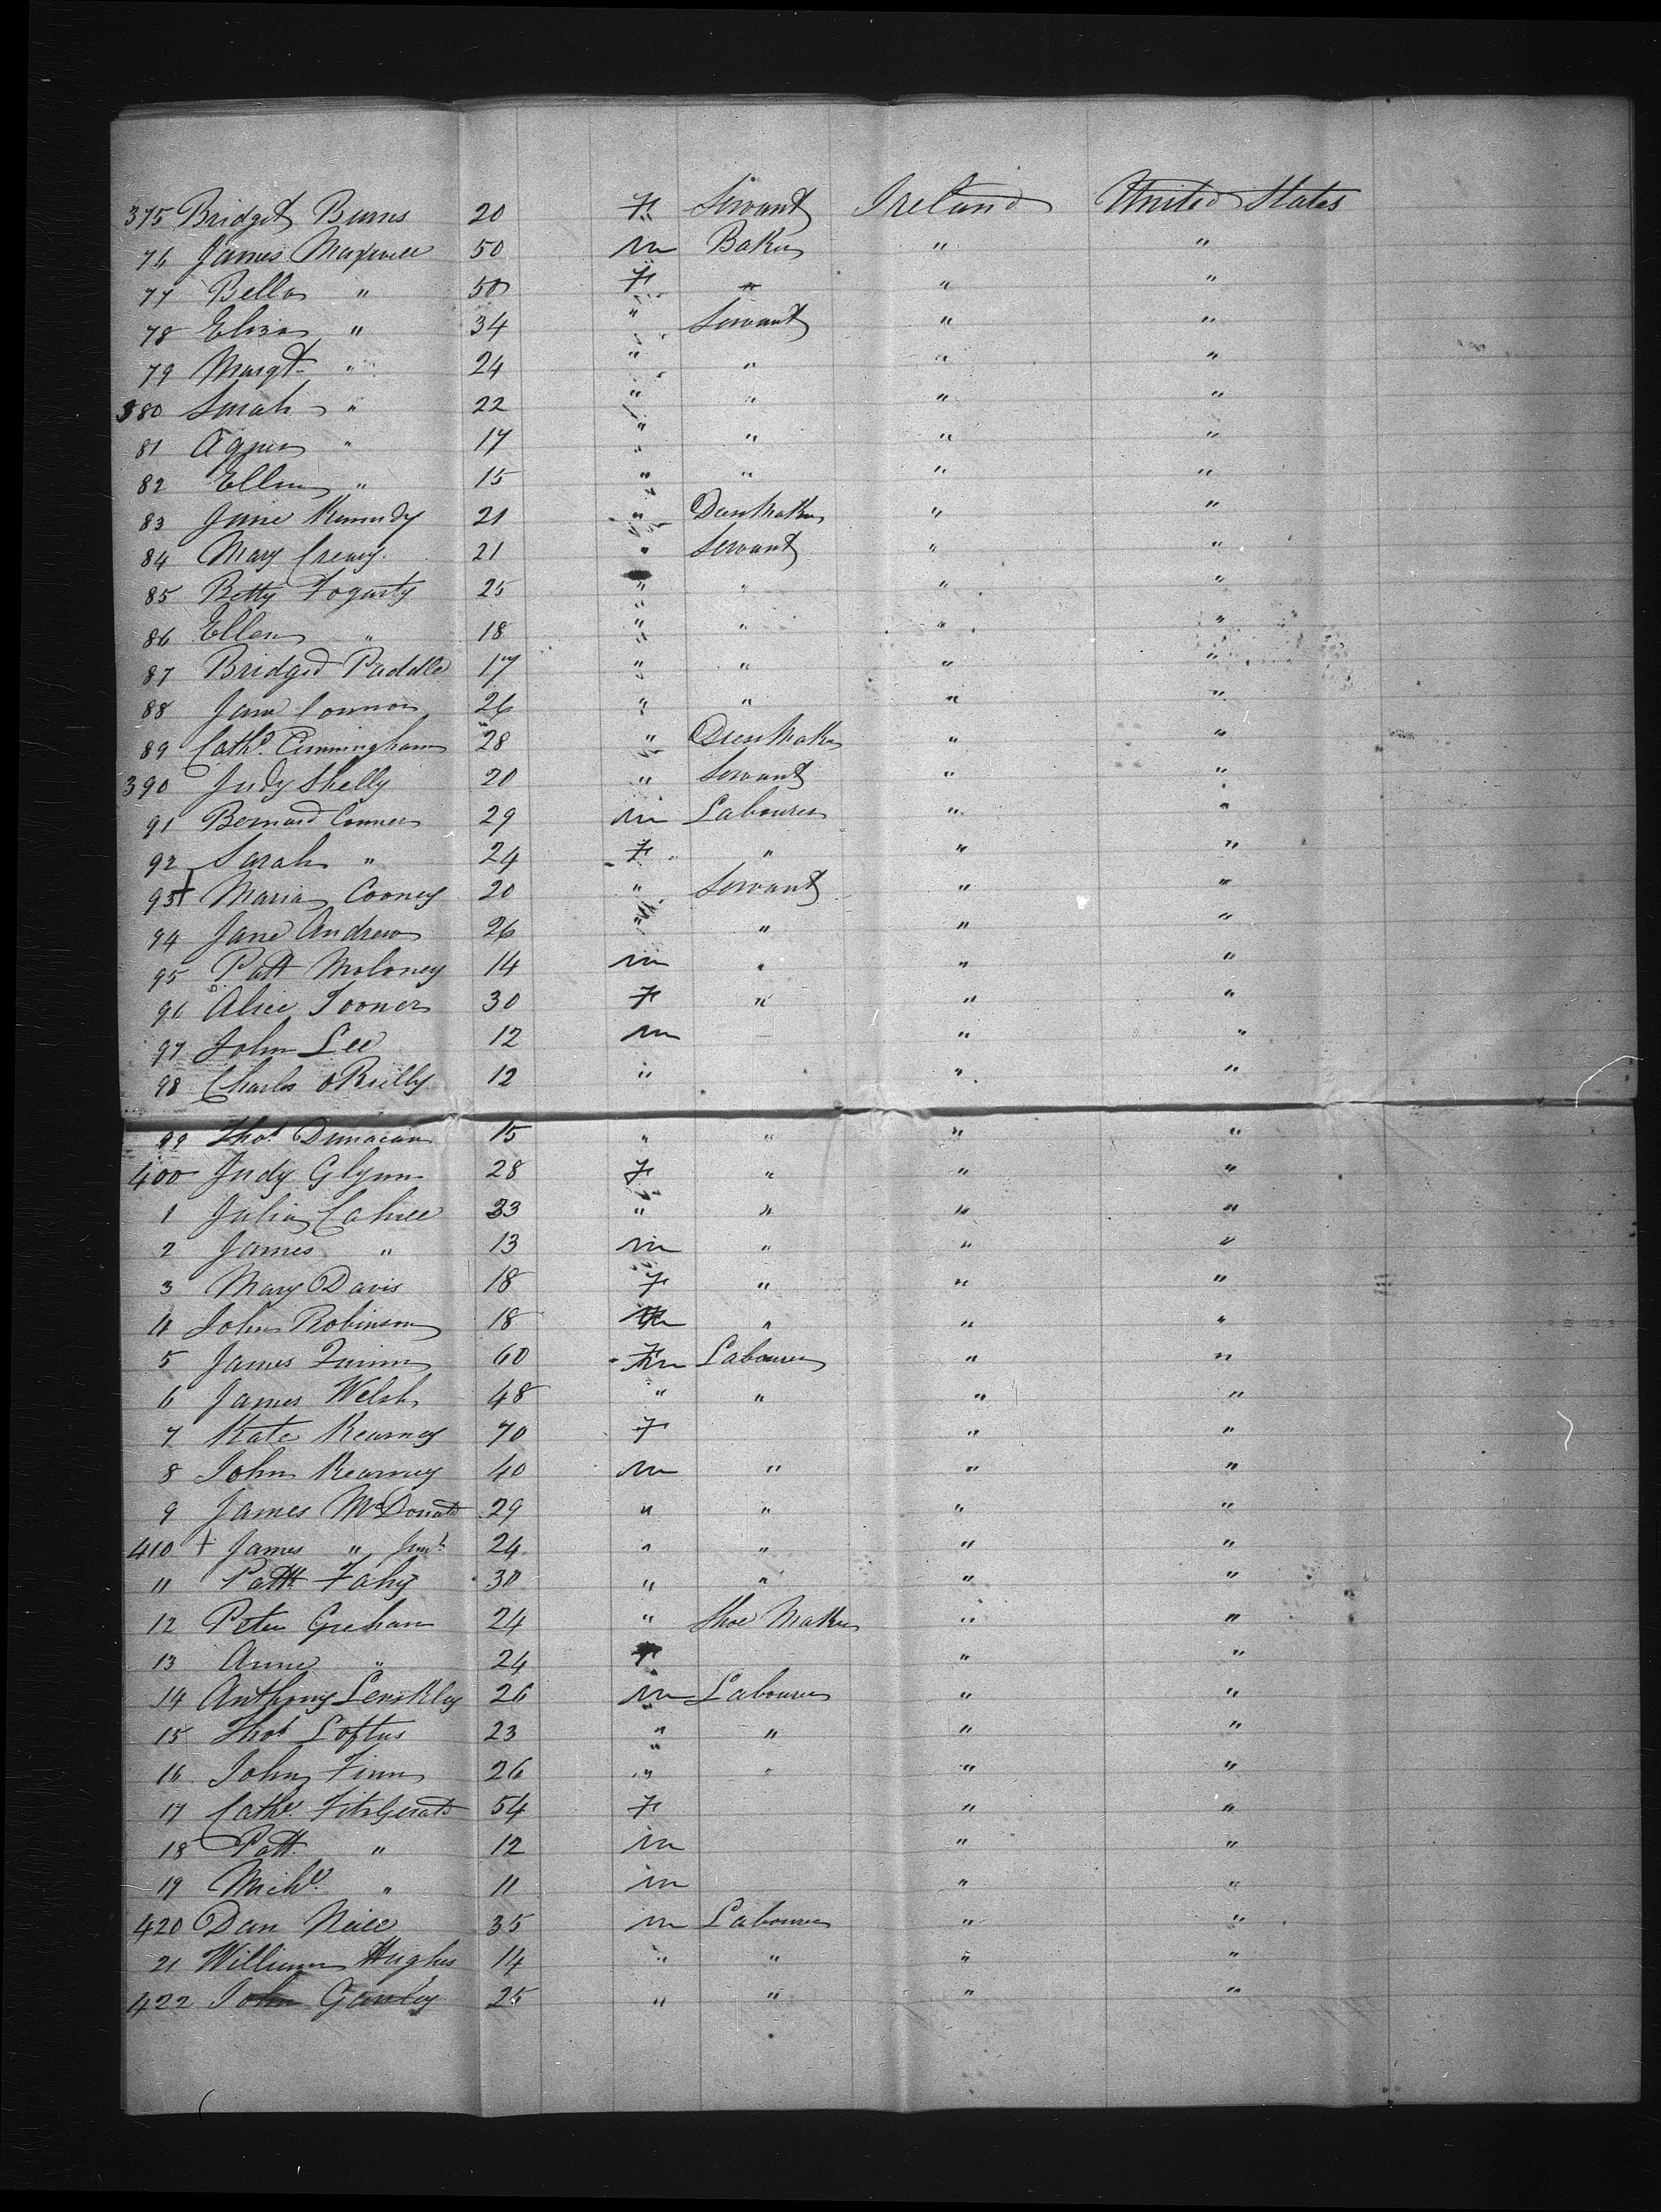 375 Bridget Burns 20 F Servant Ireland United States
76 James Maxwell 50 m Baker " "
77 Bella " 50 F " " "
78 Eliza " 34 " Servant " "
79 Margt " 24 " " " "
380 Sarah " 22 " " " "
81 Agnes " 17 " " " "
82 Ellen " 15 " " " "
83 Jane Kennedy 21 " DressMaker " "
84 Mary Creavy 21 " Servant " "
85 Betty Fogarty 25 " " " "
86 Ellen " 18 " " " "
87 Bridget Paddle 17 " " " "
88 Jane Connor 26 " " " "
89 Cathe Cunningham 28 " DressMaker " "
390 Judy Shelly 20 " Servant " "
91 Bernard Conner 29 m Labourer " "
92 Sarah " 24 F " " "
93 + Maria Cooney 20 " Servant " "
94 Jane Andrew 26 " " " "
95 Patt Moloney 14 m " " "
96 Alice Tooner 30 F " " "
97 John Lee 12 m " "
98 Charles OReilly 12 " " "
99 Thos 15 " " " "
400 Judy Glynn 28 F " " "
1 Julia Cahill 33 " " " "
2 James " 13 m " " "
3 Mary Davis 18 F " " "
4 John Robinson 18 m " " "
5 James Quinn 60 m Labourer " "
6 James Welsh 48 " " " "
7 Kate Kearney 70 F " "
8 John Kearney 40 m " " "
9 James McDonald 29 " " " "
410 + James " Junr 24 " " " "
11 Patt Fahy 30 " " " "
12 Peter Greham 24 " Shoe Maker " "
13 Anne " 24 F " "
14 Anthony 26 m Labourer " "
15 Thos Loftus 23 " " " "
16 John Finn 26 " " " "
17 Cathe FitzGerald 54 F " "
18 Patt " 12 m " "
19 Michl " 11 m " "
420 Dan Neill 35 m Labourer " "
21 William Hughes 14 " " " "
422 John Ganley 25 " " " "